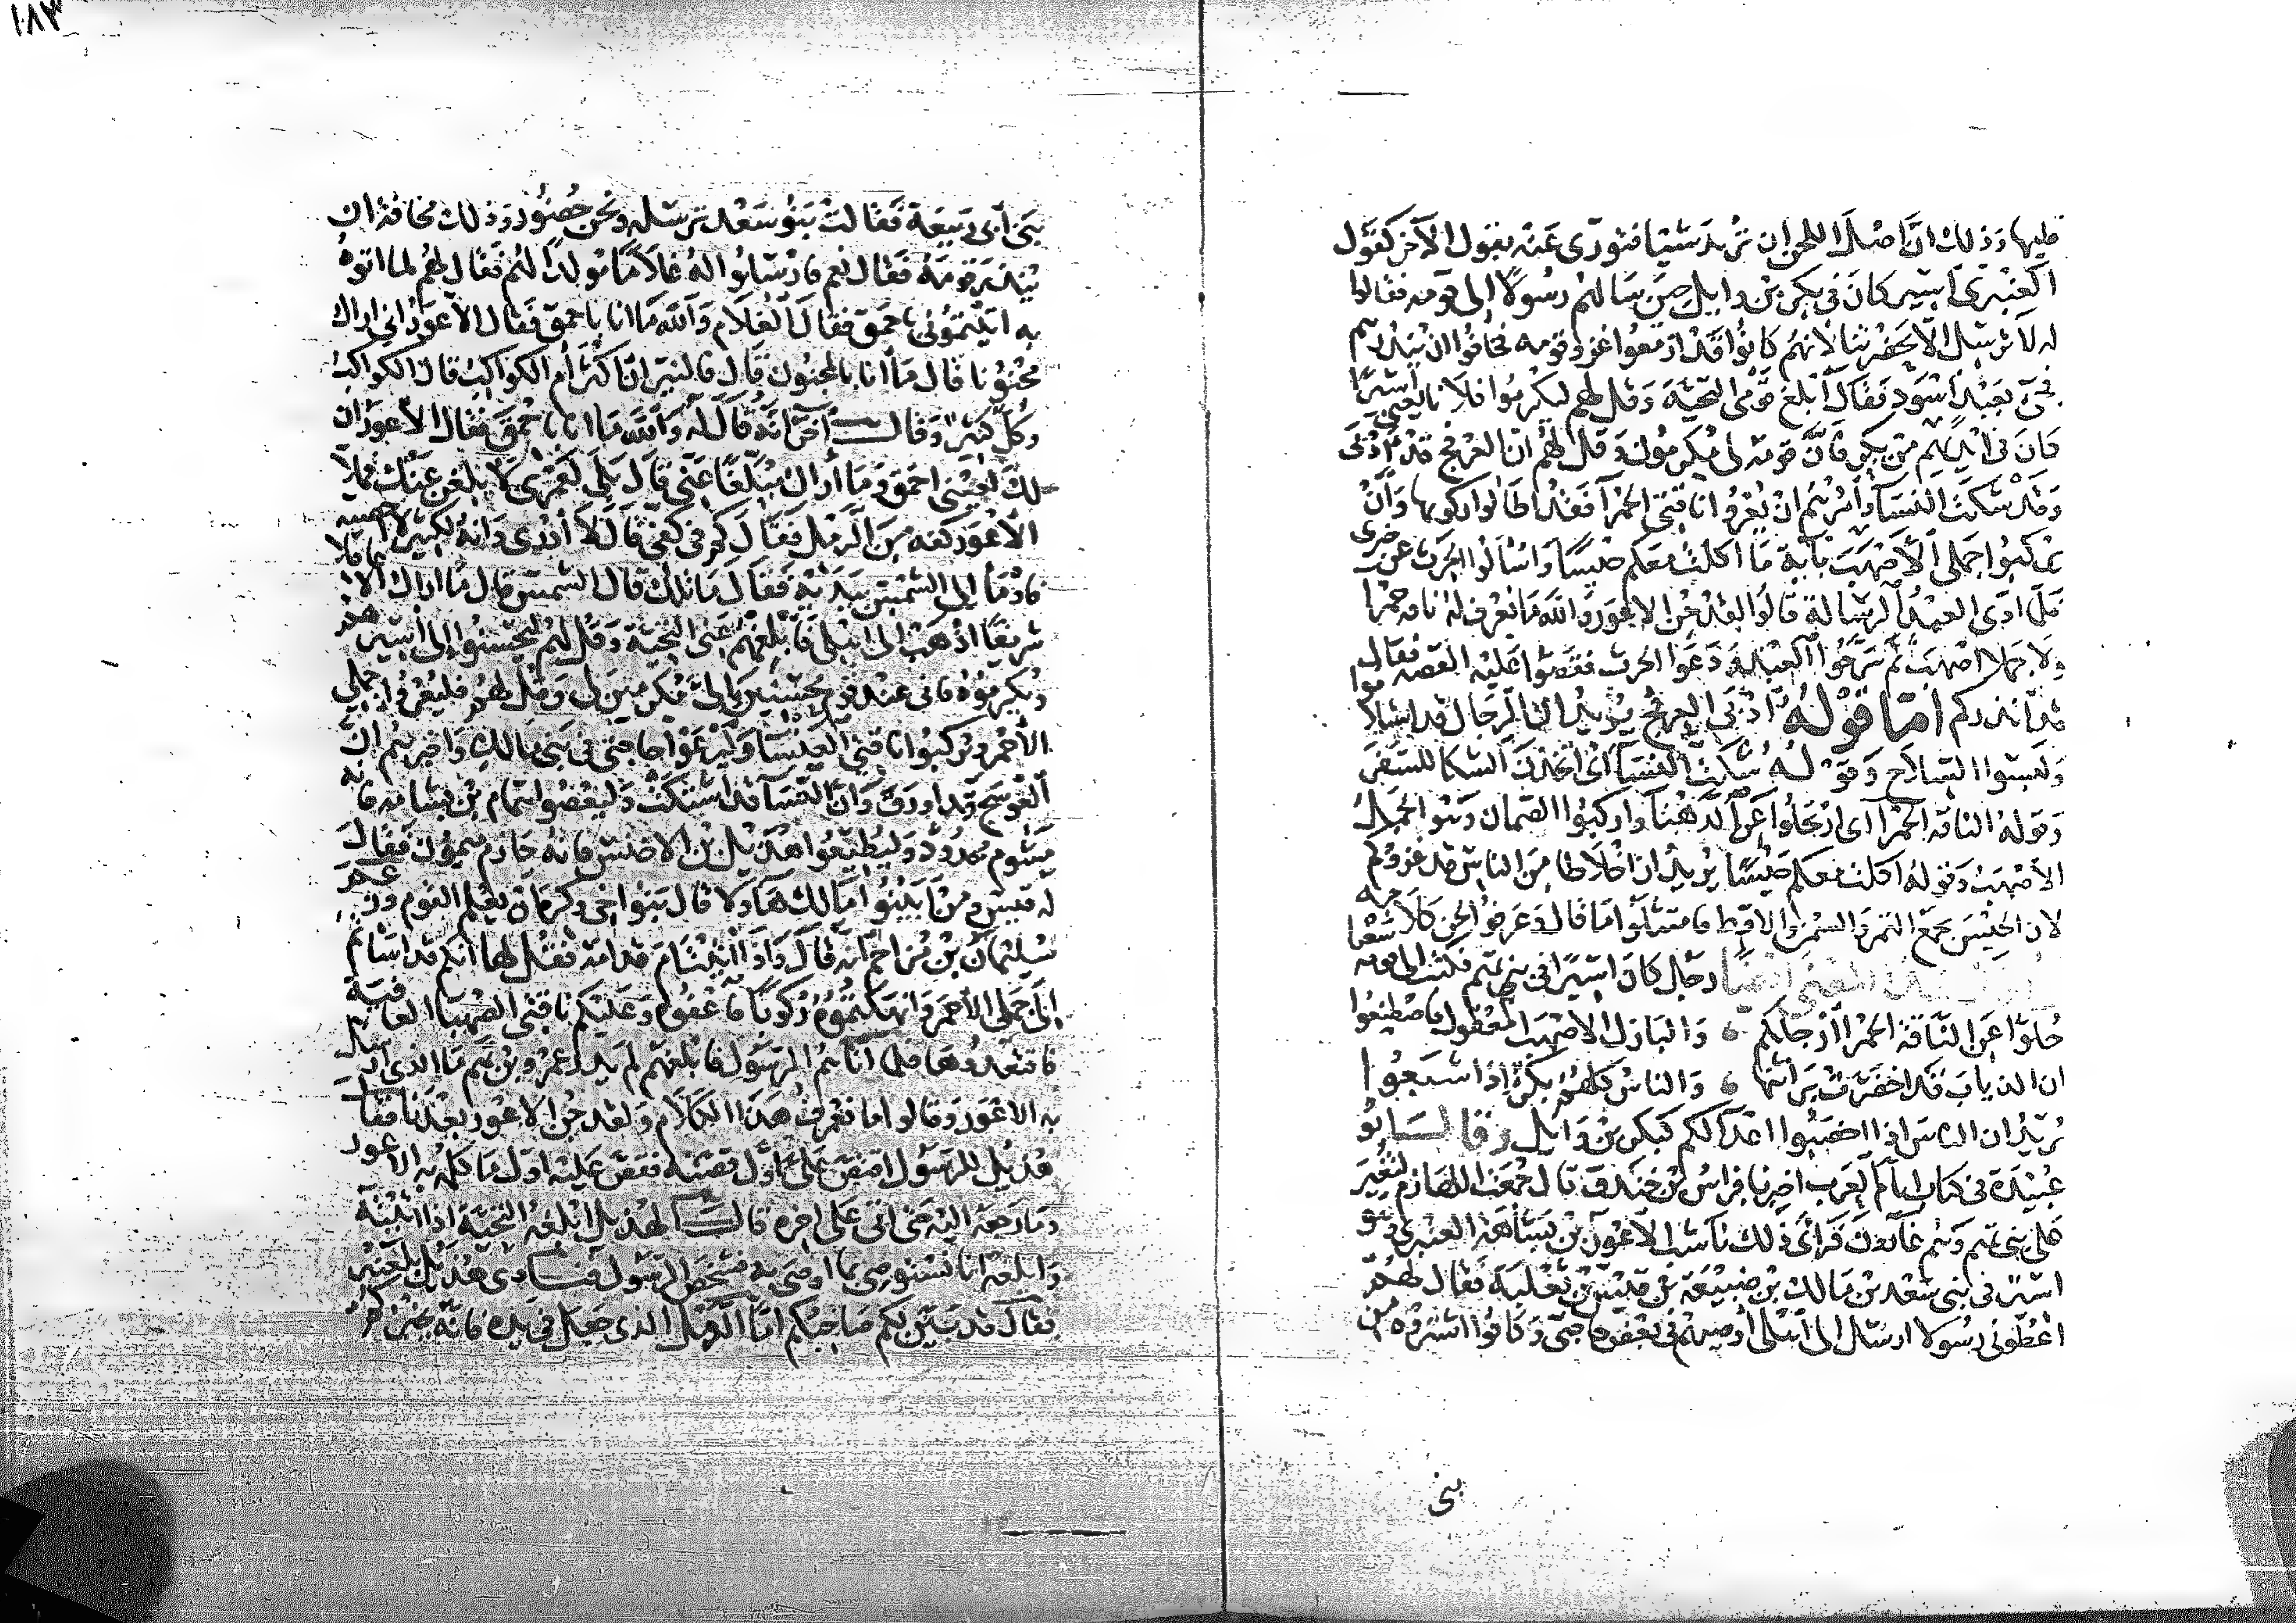 عليها وذلك انَّ اصْلَ اللحن ان تُريدَ شَيْئا فتورّى عَنْه بقول الآخر كقول
العَنْبَرِى اَسِير كانَ فى بكر بن وايل حِينَ سَالهُم رسُولاً إلى قومه فقالوا
له لا تُرسِل الّا بحضرتنا لانهم كانوا قد ازمَعوا غزو قومه فخافوا ان يُنذِرهم
فجىَ بعَبْد اَسْوَد فقَال اَبْلغ قومى التحيّة وقل لهم ليكرموا فلانا يعنى اَسِيرًا
كانَ فى ايديهم من بكر فانَّ قومَه لى مُكرمون وقل لهم ان العرفج قد اَدْبَى
وقد شكت النساَ واْمُرْهم ان يُعْروا ناقتى الحمرآ فقد اطالوا ركوبها وَاَنْ
يركبوا جملى الاَصْهَبَ بآية ما اكلتُ معكم حَيْسًا واسْاَلُوا الحرث عن خبرى
فلمّا ادّى العبْدُ الرسَالةَ قالُوا لقد جُنّ الاعور واللّه ما نعرف له ناقه حمرا
ولا جملا اصْهبَ ثم سَرّحُوا العَبْدَ ودَعَوا الحرث فقصّوا عليه القصه فقال
قد اَنذركم امّا قوْلُه ادْبَى العرفج يُريد انّ الرّجال قد استلاموا
ولبسوا السّلاح وقوْلُه شكت النسَا اى اتخذن الشكا للسّفَر
وقوله الناقه الحمرآ اى ارْتحلُوا عَن الدّهْنآ واركبُوا الصّمان وهو الجمل
الاصْهَبُ وقوله اكلت معكم حَيْسًا يُريد ان اخلاطا مِنَ الناس قد غزوكم
لان الحَيْسَ يجمع التمر والسمن والاقط فامتثلُوا ما قال وعَرفوا لحن كلامه
رجُل كان اَسِيرًا فى بنى تميم فكتب الى قومه
حُلّوا عَن النّاقة الحمرآ ارْحلكم ، والبازل الاصْهبَ المعقول فاصْطنِعُوا
ان الذياب قد اخضرّت بَراثنها ، والناسُ كلهُم بكرٌ اذا شبعُوا
يُريْدُ ان الناسَ اذا اخصَبُوا اعدآ لكم كبكر بن وَايل وَقال ابُو
عُبَيْدة فى كتاب ايّام العَرَب اخبرنا فراسُ بن خندق قال جمعَت اللهازم لتُغِيرَ
على بنى تميم وهُم غارُّونَ فرأى ذلك ناشب الاعْور بن بَشامَة العنبرى وهو
اسيرٌ فى بنى سَعْد بن مَالك بن ضبَيْعَة بن قَيْس بن ثعْلبَة فقال لهُم
اعْطُونى رسُولا ارسله الى اَهْلى اُوصيهم فى بعض حاجتى وكانوا اشتروه من
بنى
١٨٣
بَنى اَبى رَبيعَة فقالت بنُو سَعْد تُرسله ونحن حُضورٌ وذلك مخافة ان
يُنذر قومَهُ فقال نعم فارْسَلوا لهُ غلامًا مُولّدًا لهُم فقال لهم لما اتوهُ
به اَتيْتمُونى باحمق فقالَ الغلام وَاللّه مَا انا باحمق فقال الاعور انى اراك
مجنونا قال مَا اَنا بالمجنون قال فالنيران اكثر أم الكواكب قال الكواكب
وكلٌّ كثيرٌ وقال آخر اَنه قال له واللّه مَا انا باحمق فقال الاعور ان
لكَ لعَيْنى احمق ومَا أراك مُبلّغًا عَنّى قالَ بلَى لعَمْرى لابلغن عنك فملأ
الاعور كفه مِن الرَمْل فقال كم فى كفّى قال لا أدْرى وانه لكثير لا اُحصيه
فاوْمَأ إلى الشمس بيده فقال ما تلك قال الشمس قال ما اراك الا عاقلا
شريفًا اذْهَب الى اهلى فاَبْلغهُم عَنى التحيّة وقل لهُم ليُحسنُوا الى اسيرهم
ويُكرموُه فانى عند قوم يُحسنون إلىَّ مُكرمين لى وقل لهُم فليُعْروا جملى
الاحمر ويركبوا ناقتى العَيْسَا وليَرْعَوْا حاجتى فى بنى مالك واخبرهُم انّ
العَوسَج قد اورق وانّ النسَآ قد اشتكت وليَعْصُوا همّام بن بشامه فانه
مَيْشوم محدُودٌ وليُطيعُوا هذيل بن الاخنس فانه حازم ميمون فقال
له قيس ومن اَبَيْنُوا مَالك هَآولا قال بَنوا اخى وكره ان يعلم القوم وزعم
سُليْمان بن مُزاحم اَنه قال واذا اتيت اُمّ قدامة فقل لها انكم قد اَسَاتم
اِلى جَملى الاحمر وانهكتُمُوهُ رُكوبًا فاعفوه وعَليكم ناقتى الصّهبا العافية
فاقتعدُوها فلما اتاهُم الرسُول فابلغهُم لم يدر عمرو بن تميم مَا الذى ارسل
به الاعْور وقالوا ما نعْرف هَذا الكلام ولقد جُن الاعور بعْدنا فقال
هُذيل للرّسُول اقتصّ علىّ اوّل قصّته فقصّ عليه اوّل مَا كلمه به الاعور
ومَا رجعه اليه حتى اتى على اخره قال لهُ هذيل ابلغهُ التحيّة اذا اتيْته
وَابلغه انا نستوصى بما اوصَى به فشخص الرسول فنادى هُذيْل بلعَنْبر
فقال قد بَيّن لكم صَاحِبُكم امّا الرّمْل الذى جعل فى يده فانّه يُخبركم